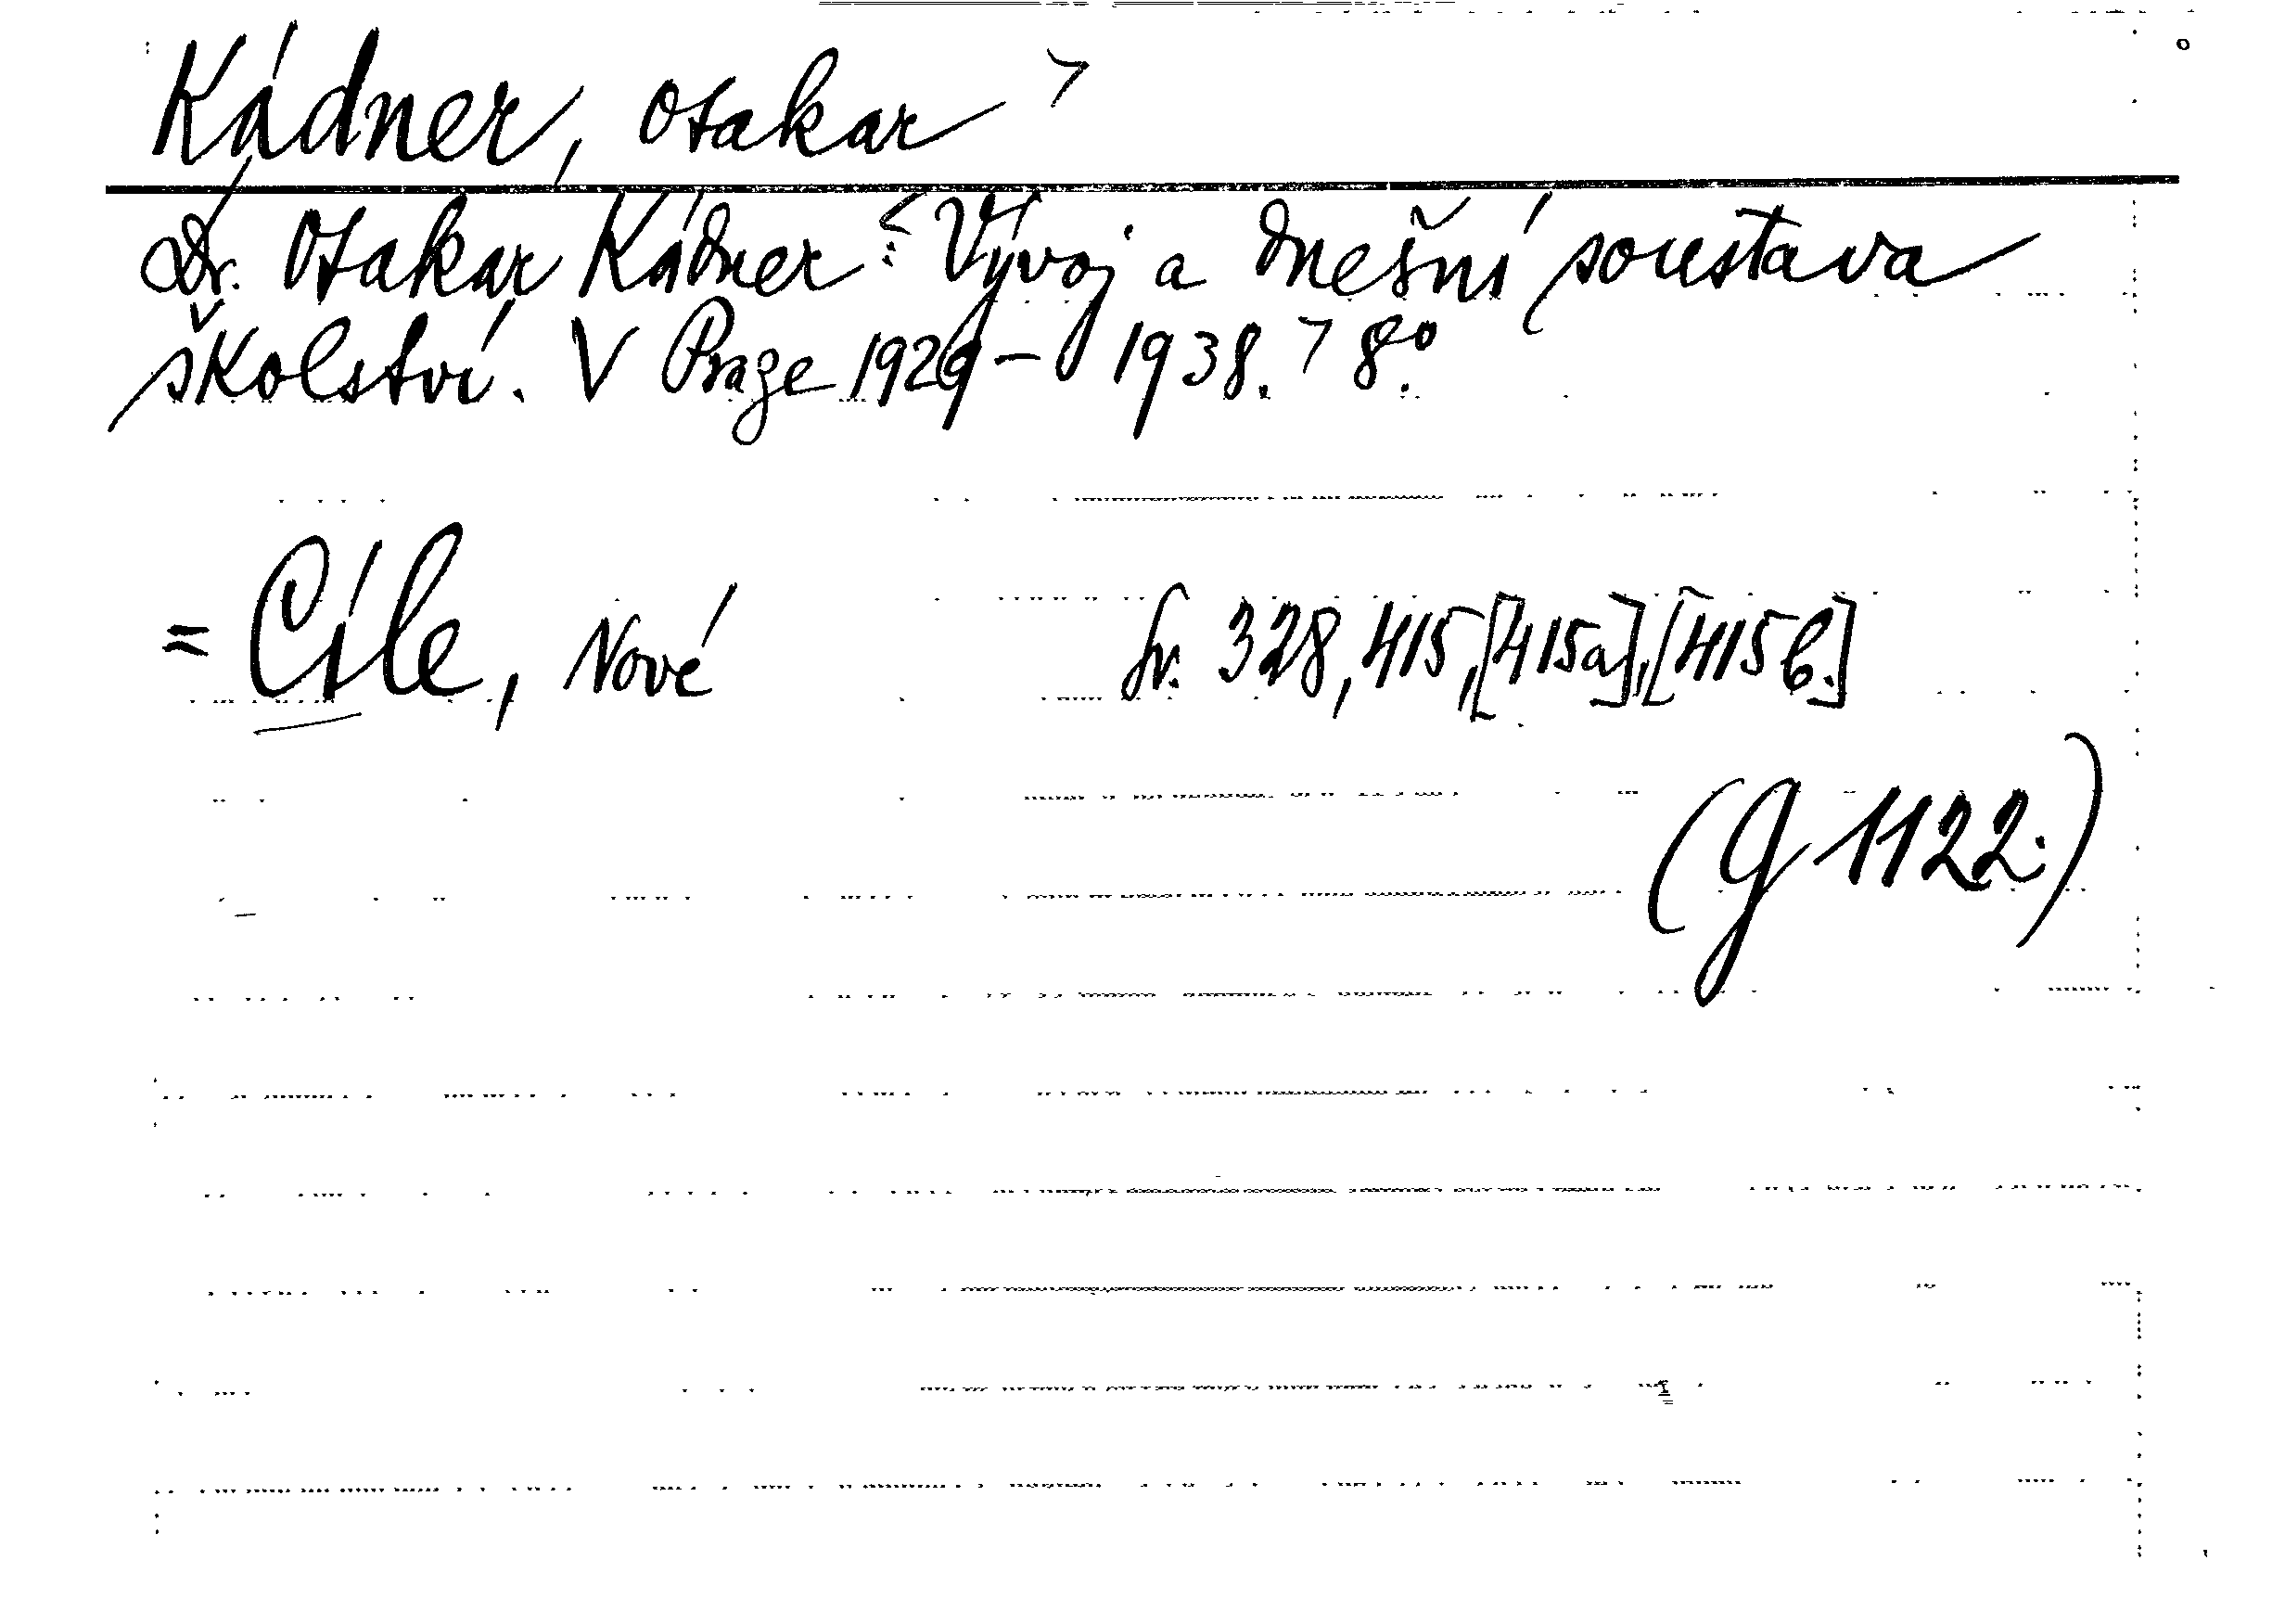 Kádner, Otakar >
Dr. Otakar Kádner: < Vývoj a dnešní soustava
školství. V Praze 1929 – 1938. > 8º.
= Cíle, Nové Sv. 328, 415, [415a], [415b.]
(G 1122.)